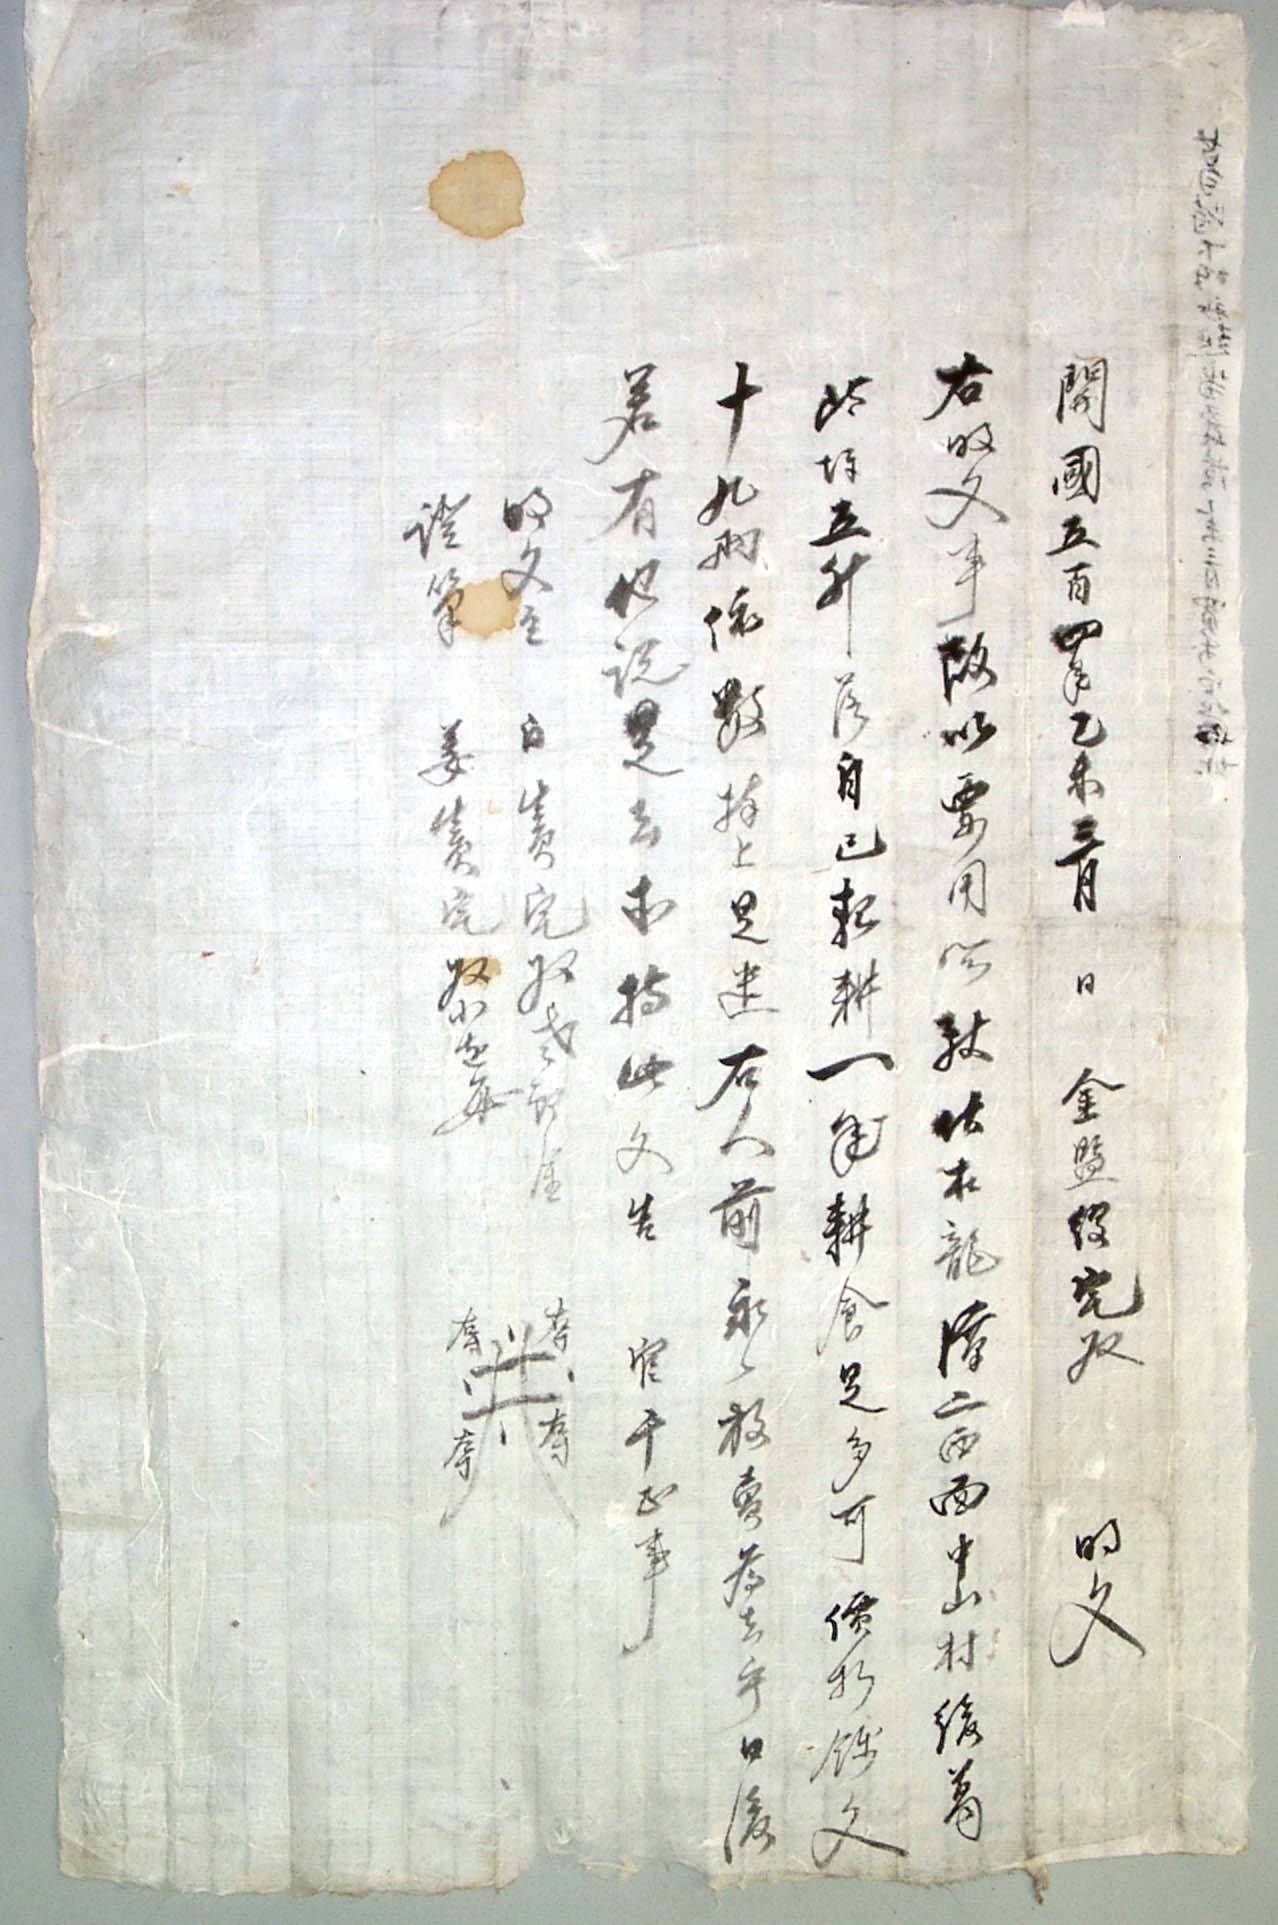 開國五百四年乙未三月 日 金監役宅奴 明文
右明文事段以要用所致伏在龍潭二西面中山村後葛
坪五升落自己起耕一年耕食是多可價折錢文
十九兩依數捧上是遣右人前永永放賣爲去乎日後
若有他說是去等持此文告 官卞正事
明文主 白生員宅奴
證筆 姜生員宅奴
左寸
右寸